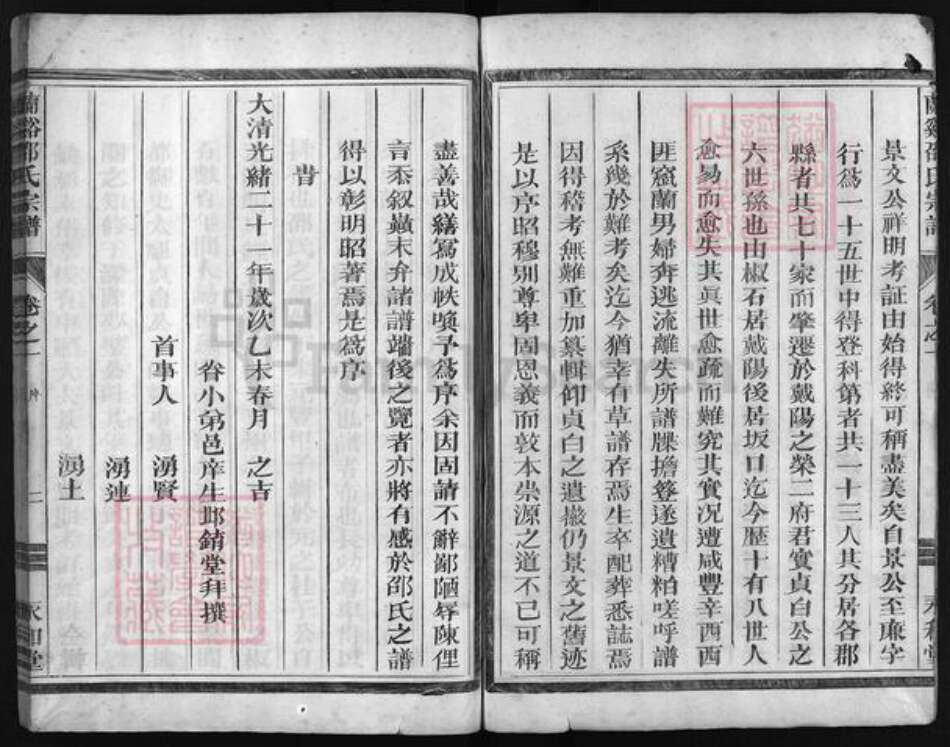 景文公祥明考証由始得終可稱盡美矣自景公至廉字
行爲一十五世中得登科第者共一十三人其分居各郡
縣者共七十家而肇遷於戴陽之榮二府君實貞白公之
六世孫也由椒石居戴陽後居坂口迄今歷十有八世人
愈易而愈失其眞世愈疏而難究其實况遭咸豐辛酉西
匪竄蘭男婦奔逃流離失所譜牒擔簦遂遺糟粕嗟呼譜
系幾於難考矣迄今猶幸有草譜存焉生卒配葬悉誌焉
因得稽考無難重加纂輯仰貞白之遺嚴仍景文之舊迹
是以序昭穆别尊卑固恩義而敦本崇源之道不已可稱
盡善哉繕寫成帙喚予爲序余因固請不辭鄙陋辱陳俚
言忝叙蟻末弁諸譜端後之覽者亦將有感於邵氏之譜
得以彰明昭著焉是爲序
旹
大清光緒二十一年歲次乙未春月 之吉
眷小弟邑庠生邶錥堂拜撰
首事人 湧賢
湧連
湧土
蘭谿邵氏宗譜 卷之一 二 永和堂
FamilySearch